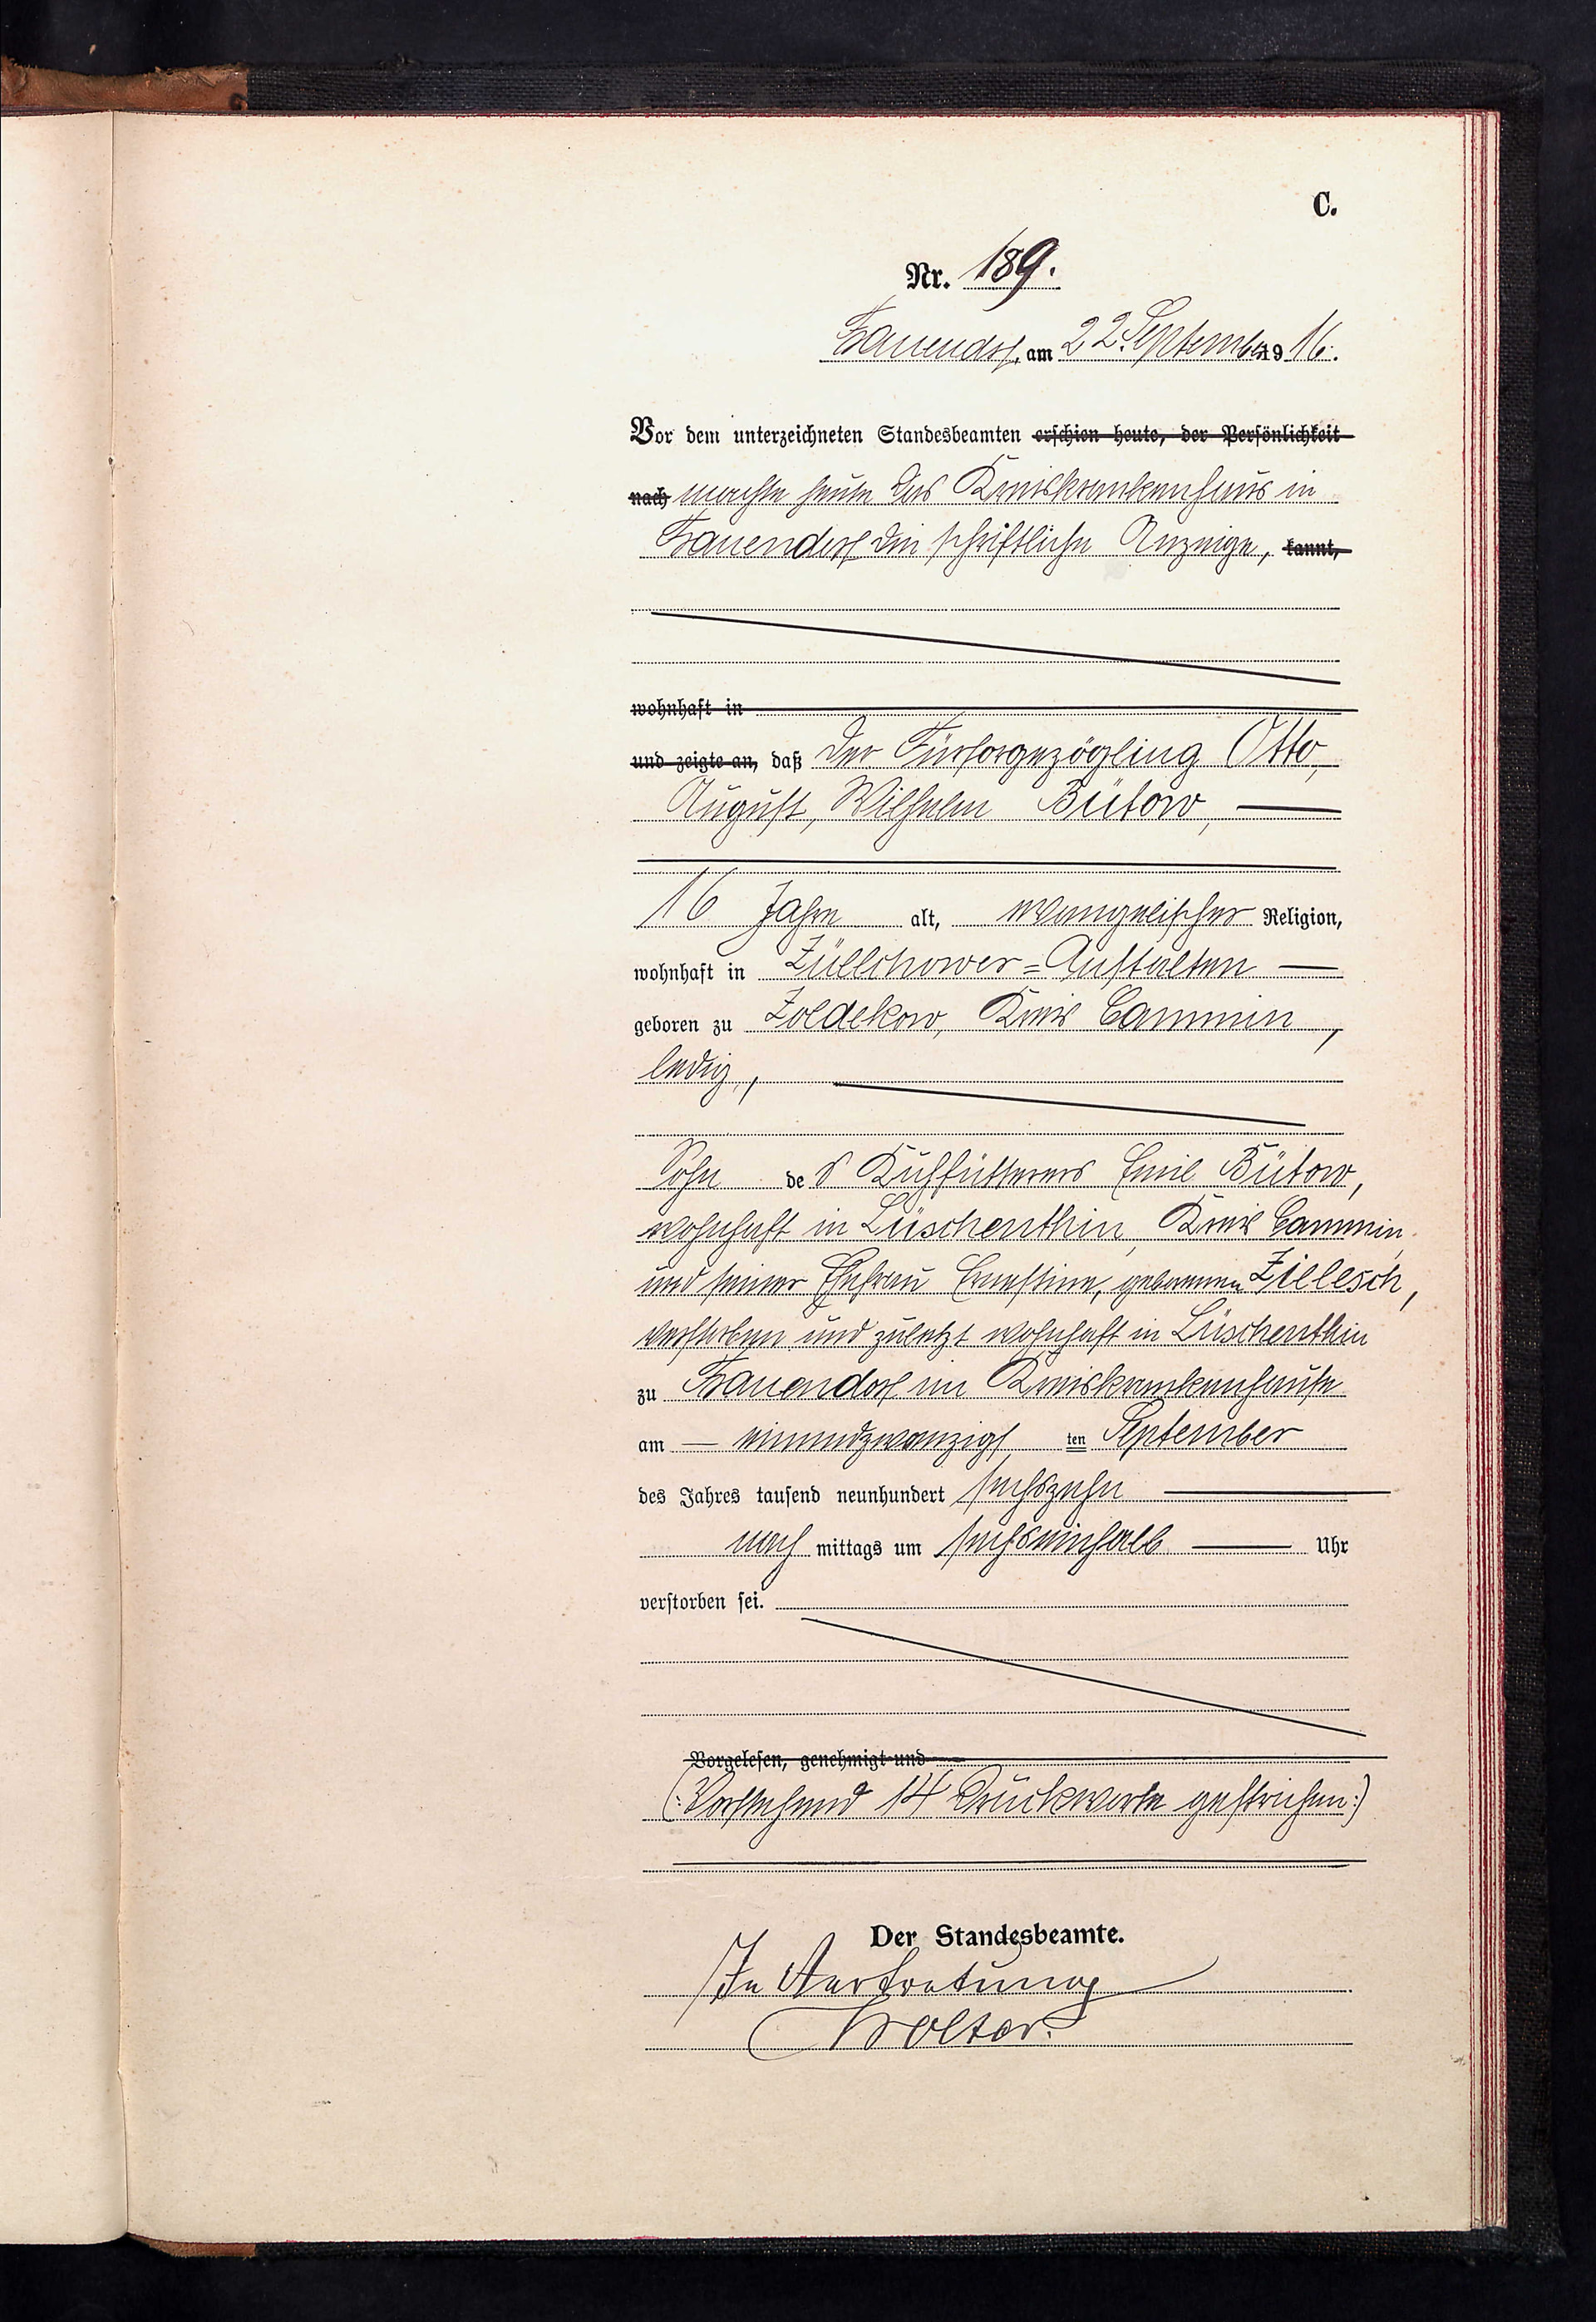 C.
Nr. 189.
Frauendorf, am 22. September 1916.
Vor dem unterzeichneten Standesbeamten erschien heute, der Persönlichkeit
nach machte heute das Kreiskrankenhaus in
Frauendorf die schriftliche Anzeige, kannt,
wohnhaft in
und zeigte an, daß der Fürsorgezögling Otto,
August, Wilhelm Bütow,
16 Jahre alt, evangelischer Religion,
wohnhaft in Züllchower-Anstalten
geboren zu Zoldekow, Kreis Cammin,
ledig,
Sohn des Kuhfütterers Emil Bütow,
wohnhaft in Lüschenthin, Kreis Cammin
und seiner Ehefrau Ernestine, geborenen Zillesch,
verstorben und zuletzt wohnhaft in Lüschenthin
zu Frauendorf im Kreiskrankenhause
am einundzwanzigsten September
des Jahres tausend neunhundert sechszehn
nachmittags um sechseinhalb Uhr
verstorben sei.
Vorgelesen, genehmigt und
(: Vorstehend 14 Druckworte gestrichen :)
Der Standesbeamte.
In Vertretung
Wolter.